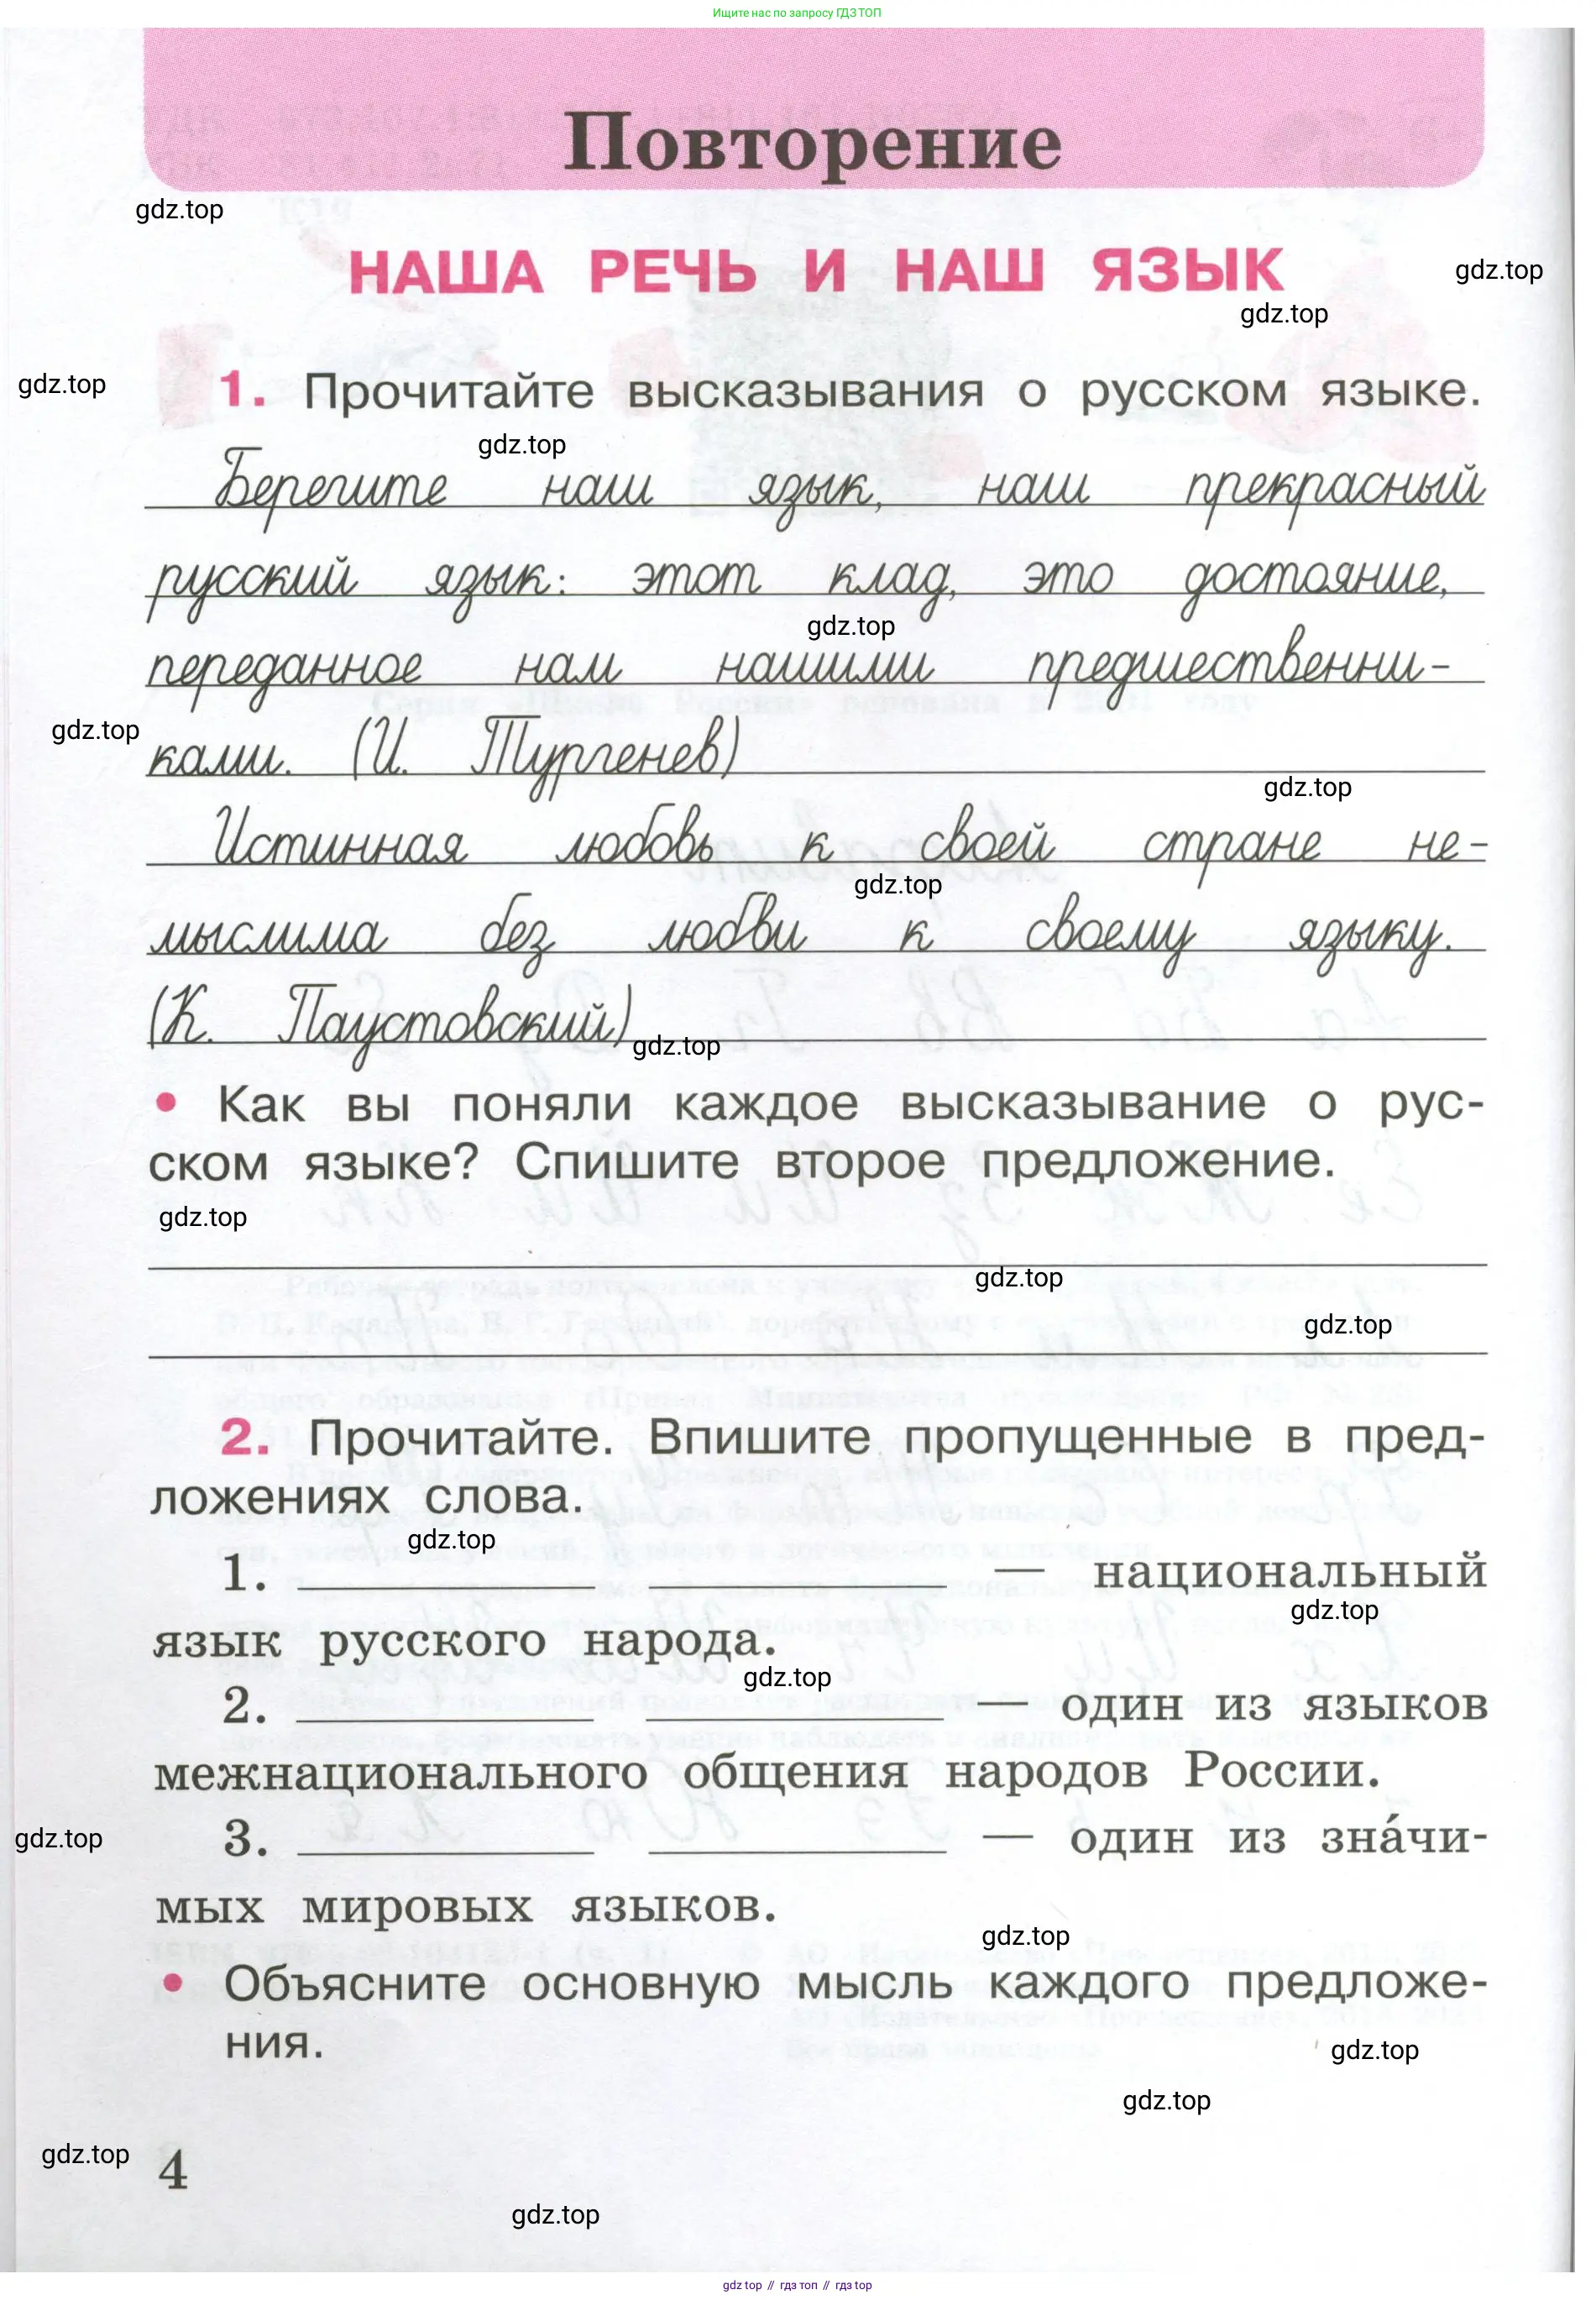 Ищите нас по запросу ГДЗ ТОП
Повторение
gdz.top
НАША РЕЧЬ И НАШ ЯЗЫК
gdz.top
gdz.top
gdz.top
1. Прочитайте высказывания о русском языке.
gdz.top
Берегите наш язык, наш прекрасный
русский язык: этот клад, это достояние,
gdz.top
переданное нам нашими предшественни-
gdz.top
ками. (И. Тургенев)
gdz.top
Истинная любовь к своей стране не-
gdz.top
мыслима без любви к своему языку.
(К. Паустовский)
gdz.top
• Как вы поняли каждое высказывание о рус-
ском языке? Спишите второе предложение.
gdz.top
gdz.top
gdz.top
2. Прочитайте. Впишите пропущенные в пред-
ложениях слова.
gdz.top
1. — национальный
gdz.top
язык русского народа.
gdz.top
2. — один из языков
межнационального общения народов России.
gdz.top
3. — один из зна́чи-
мых мировых языков.
gdz.top
• Объясните основную мысль каждого предложе-
ния.
gdz.top
gdz.top
gdz.top
4
gdz.top
gdz top // гдз топ // гдз top